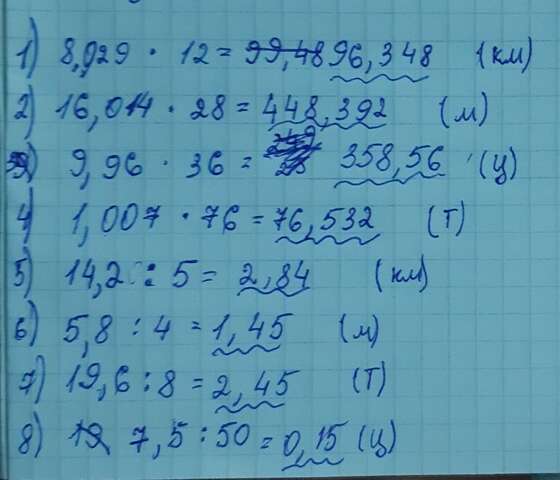 1) 8,029 · 12 = 99,48 96,348 (км)
2) 16,014 · 28 = 448,392 (м)
3) 9,96 · 36 = 358,56 (ц)
4) 1,007 · 76 = 76,532 (т)
5) 14,2 : 5 = 2,84 (км)
6) 5,8 : 4 = 1,45 (м)
7) 19,6 : 8 = 2,45 (т)
8) 19, 7,5 : 50 = 0,15 (ц)